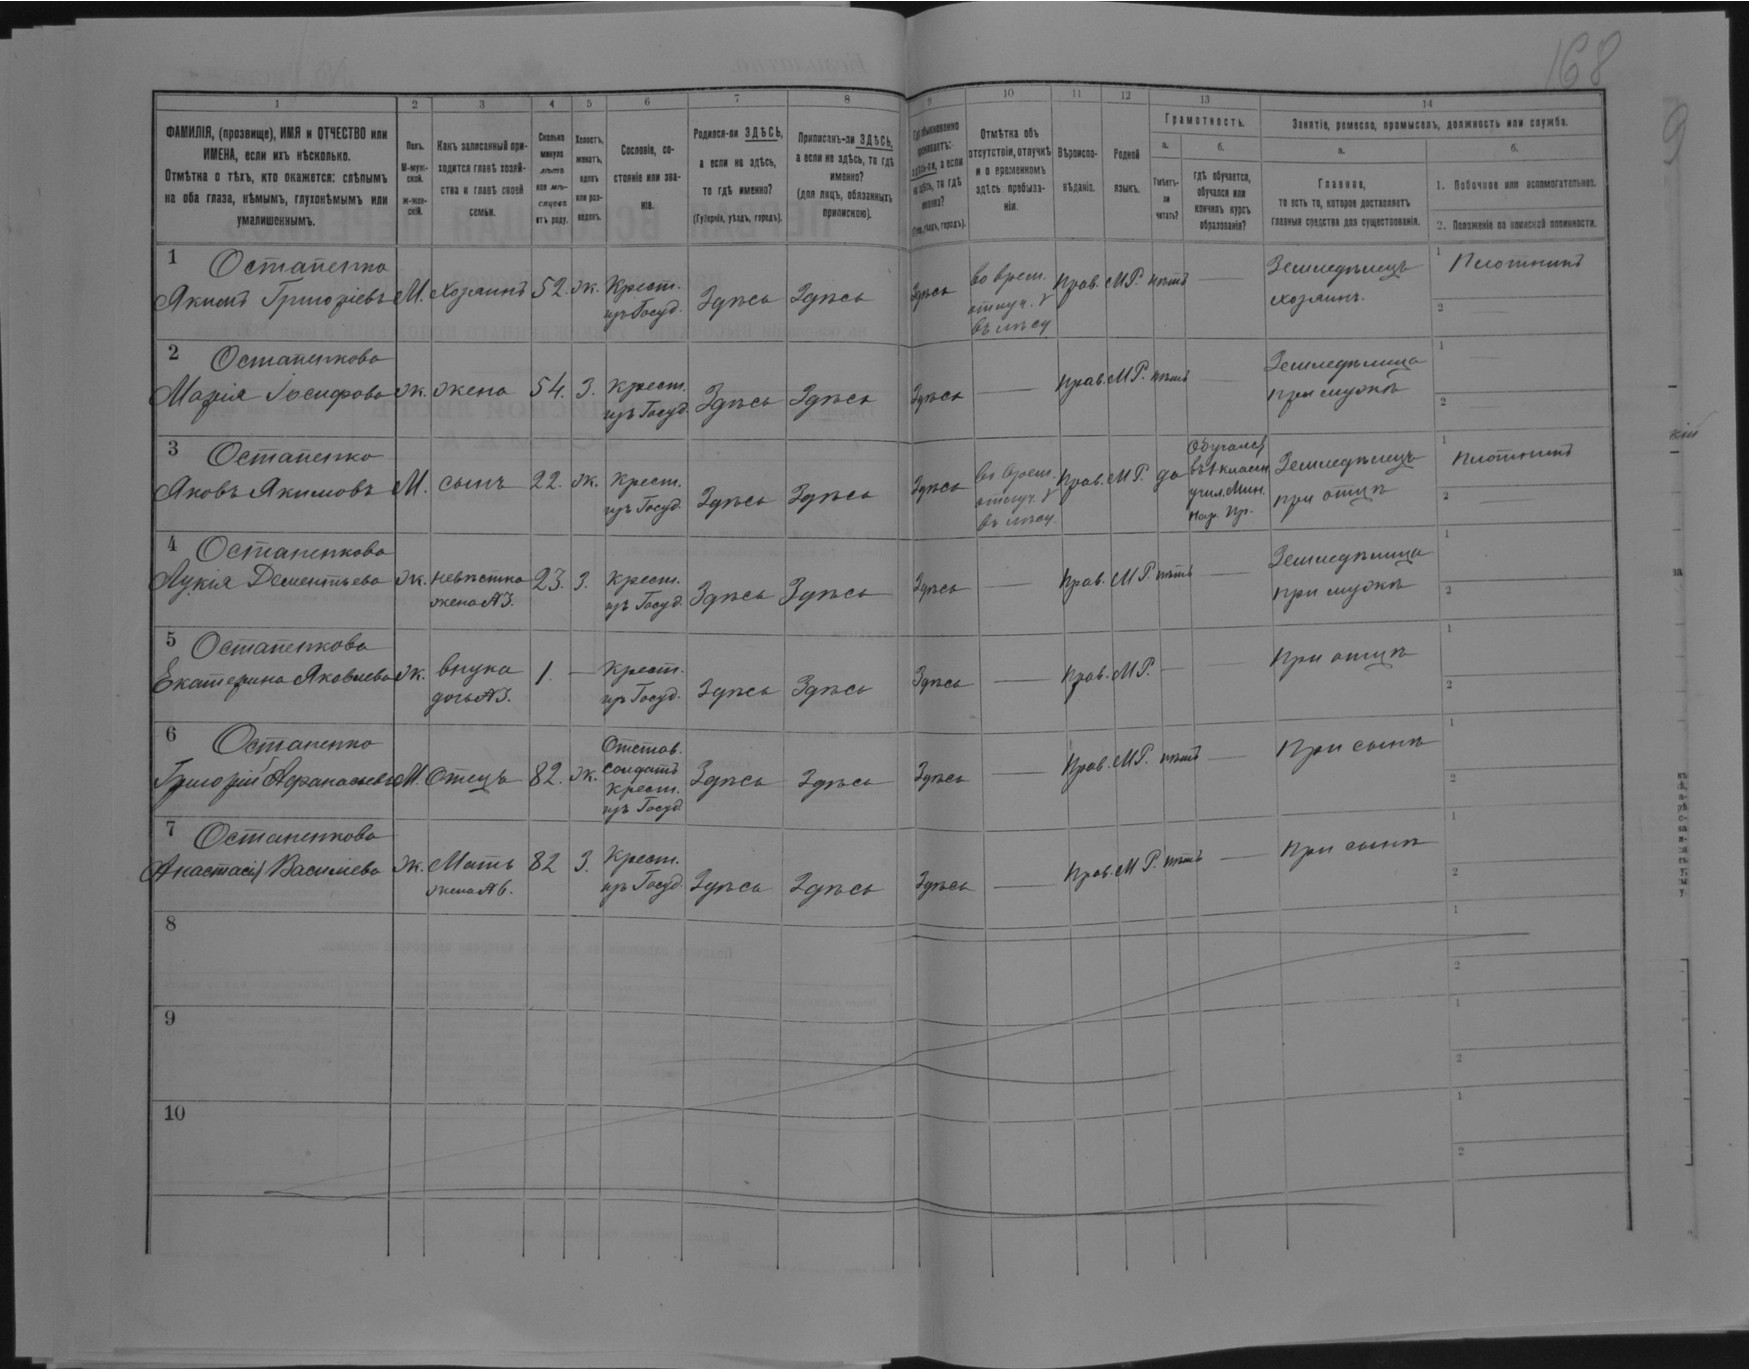 168
9
1 2 3 4 5 6 7 8 9 10 11 12 13 14
ФАМИЛІЯ, (прозвище), ИМЯ и ОТЧЕСТВО или ИМЕНА, если ихъ нѣсколько.
Отмѣтка о тѣхъ, кто окажется: слѣпымъ на оба глаза, нѣмымъ, глухонѣмымъ или умалишеннымъ.
Полъ.
М-муж-
ской.
ж-жен-
скій.
Какъ записанный при-
ходится главѣ хозяй-
ства и главѣ своей
семьи.
Сколько
минуло
лѣтъ
или мѣ-
сяцевъ
отъ роду.
Холостъ,
женатъ,
вдовъ
или раз-
веденъ.
Сословіе, со-
стояніе или зва-
ніе.
Родился-ли ЗДѢСЬ,
а если не здѣсь,
то гдѣ именно?
(Губернія, уѣздъ, городъ).
Приписанъ-ли ЗДѢСЬ,
а если не здѣсь, то гдѣ
именно?
(для лицъ, обязанныхъ
припискою).
Гдѣ обыкновенно
проживаетъ:
здѣсь-ли, а если
не здѣсь, то гдѣ
именно?
(Губ., уѣздъ, городъ).
Отмѣтка объ
отсутствіи, отлучкѣ
и о временномъ
здѣсь пребыва-
ніи.
Вѣроиспо-
вѣданіе.
Родной
языкъ.
Грамотность.
а.
Умѣетъ-
ли
читать?
б.
гдѣ обучается,
обучался или
кончилъ курсъ
образованія?
Занятіе, ремесло, промыселъ, должность или служба.
а.
Главное,
то есть то, которое доставляетъ
главныя средства для существованія.
б.
1. Побочное или вспомогательное.
2. Положеніе по воинской повинности.
1 Остапенко
Якимъ Григоріевъ М. хозяинъ 52. ж. Крест.
изъ Госуд. Здѣсь Здѣсь Здѣсь во врем.
отлуч.
въ лѣсу Прав. М.Р. нѣтъ — Земледѣлецъ
хозяинъ. 1 Плотникъ
2 —
2 Остапенкова
Марія Іосифова ж. жена 54. З. Крест.
изъ Госуд. Здѣсь Здѣсь Здѣсь — Прав. М.Р. нѣтъ — Земледѣлица
при мужѣ 1 —
2 —
3 Остапенко
Яковъ Якимовъ М. сынъ 22. ж. Крест.
изъ Госуд. Здѣсь Здѣсь Здѣсь во врем.
отлуч.
въ лѣсу. Прав. М.Р. да Обучался
въ 1 класн.
учил. Мин.
Нар. Пр. Земледѣлецъ
при отцѣ 1 Плотникъ
2
4 Остапенкова
Лукія Дементьева ж. невѣстка
жена №3. 23. З. Крест.
изъ Госуд. Здѣсь Здѣсь Здѣсь — Прав. М.Р. нѣтъ — Земледѣлица
при мужѣ 1
2
5 Остапенкова
Екатерина Яковлева ж. внука
дочь №3. 1. — Крест.
изъ Госуд. Здѣсь Здѣсь Здѣсь — Прав. М.Р. — — При отцѣ 1
2
6 Остапенко
Григорій Афанасьевъ М. Отецъ 82. ж. Отстав.
солдатъ
Крест.
изъ Госуд. Здѣсь Здѣсь Здѣсь — Прав. М.Р. нѣтъ — При сынѣ 1
2
7 Остапенкова
Анастасія Василіева ж. Мать
жена №6. 82 З. Крест.
изъ Госуд. Здѣсь Здѣсь Здѣсь — Прав. М.Р. нѣтъ — При сынѣ 1
2
8 1
2
9 1
2
10 1
2